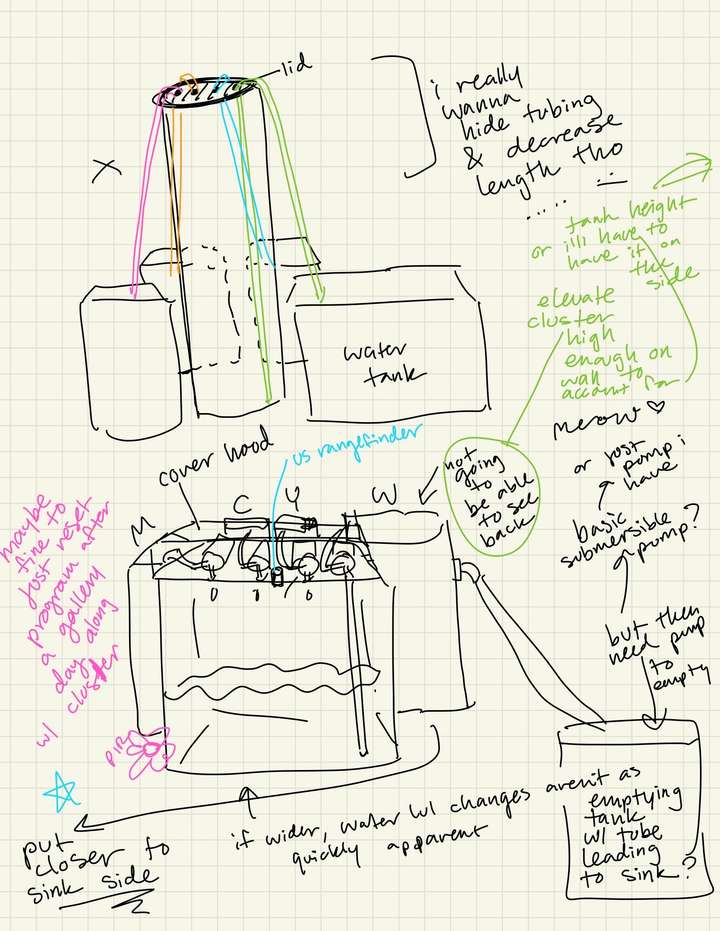 lid
i really
wanna
hide tubing
& decrease
length tho
.....
X
tank height
or i'll have to
have it on
the
side
elevate
cluster
high
enough on
wall to
account for
water
tank
meow ♡
cover hood
us rangefinder
not
going
to
be able
to see
back
or just
pump i
have
basic
submersible
pump?
M
C
Y
W
maybe
fine to
just reset
program after
a gallery
day along
w/ cluster
but then
need pump
to
empty
PIR
put
closer to
sink side
if wider, water lvl changes aren't as
quickly apparent
emptying
tank
w/ tube
leading
to sink?